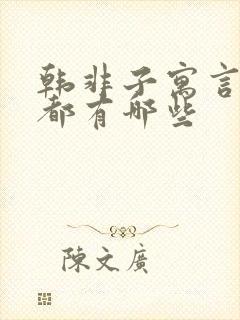 韩非子寓言
都有哪些
陳文廣